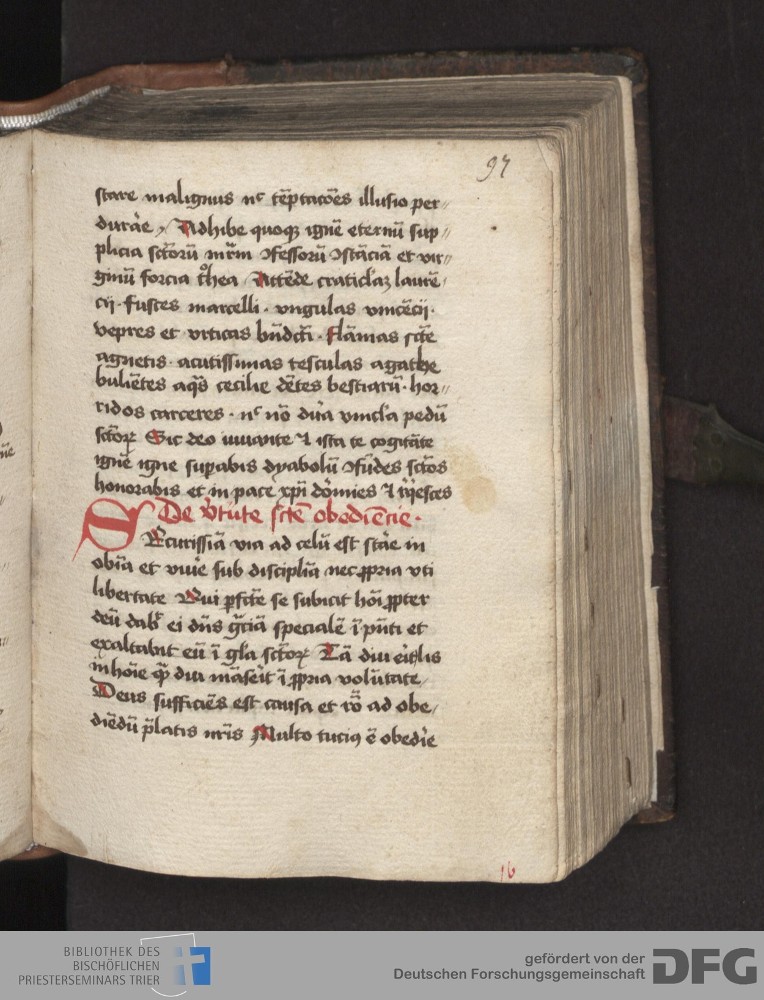 97
stare malignus nec tēptacōes illusio per〃
durāe, Adhibe quoqz ignē eternū sup〃
plicia sctōrū mrm ꝯfessorū ꝯstāciā et vir〃
ginū forcia Attēde craticlaz laurē〃
cij · fustes marcelli · vngulas vincēcij ·
vepres et vrticas bn̄dcti · flāmas scte
agnetis · acutissimas tesculas agathe
buliētes aq̄s cecilie dētes bestiarū · hor〃
ridos carceres · nec nō dura vincla pedū
sctōꝝ Sic deo iuuante ⁊ ista te cogitāte
ignē igne suꝑabis dyabolū ꝯfūdes sctōs
honorabis et in pace xp̄i dōrmies ⁊ reqiesces
De v̓tute scte obediēcie ·
SEcurissīa via ad celū est stāe in
obīa et viuē sub disciplīa nec ꝓpria vti
libertate Qui ꝑfcte se subicit hōi ꝓpter
deū dabit ei dn̄s grāciā specialē ī pn̄ti et
exaltabit eū ī gla sctōꝝ Tā diu
in hōie diu māserit ī ꝓpria volūtate
Deus sufficiēs est causa et rō ad obe〃
diēdū p̄latis nr̄is Multo tuciꝰ ē obedīe
16
BIBLIOTHEK DES
BISCHÖFLICHEN
PRIESTERSEMINARS TRIER
gefördert von der
Deutschen Forschungsgemeinschaft
DFG